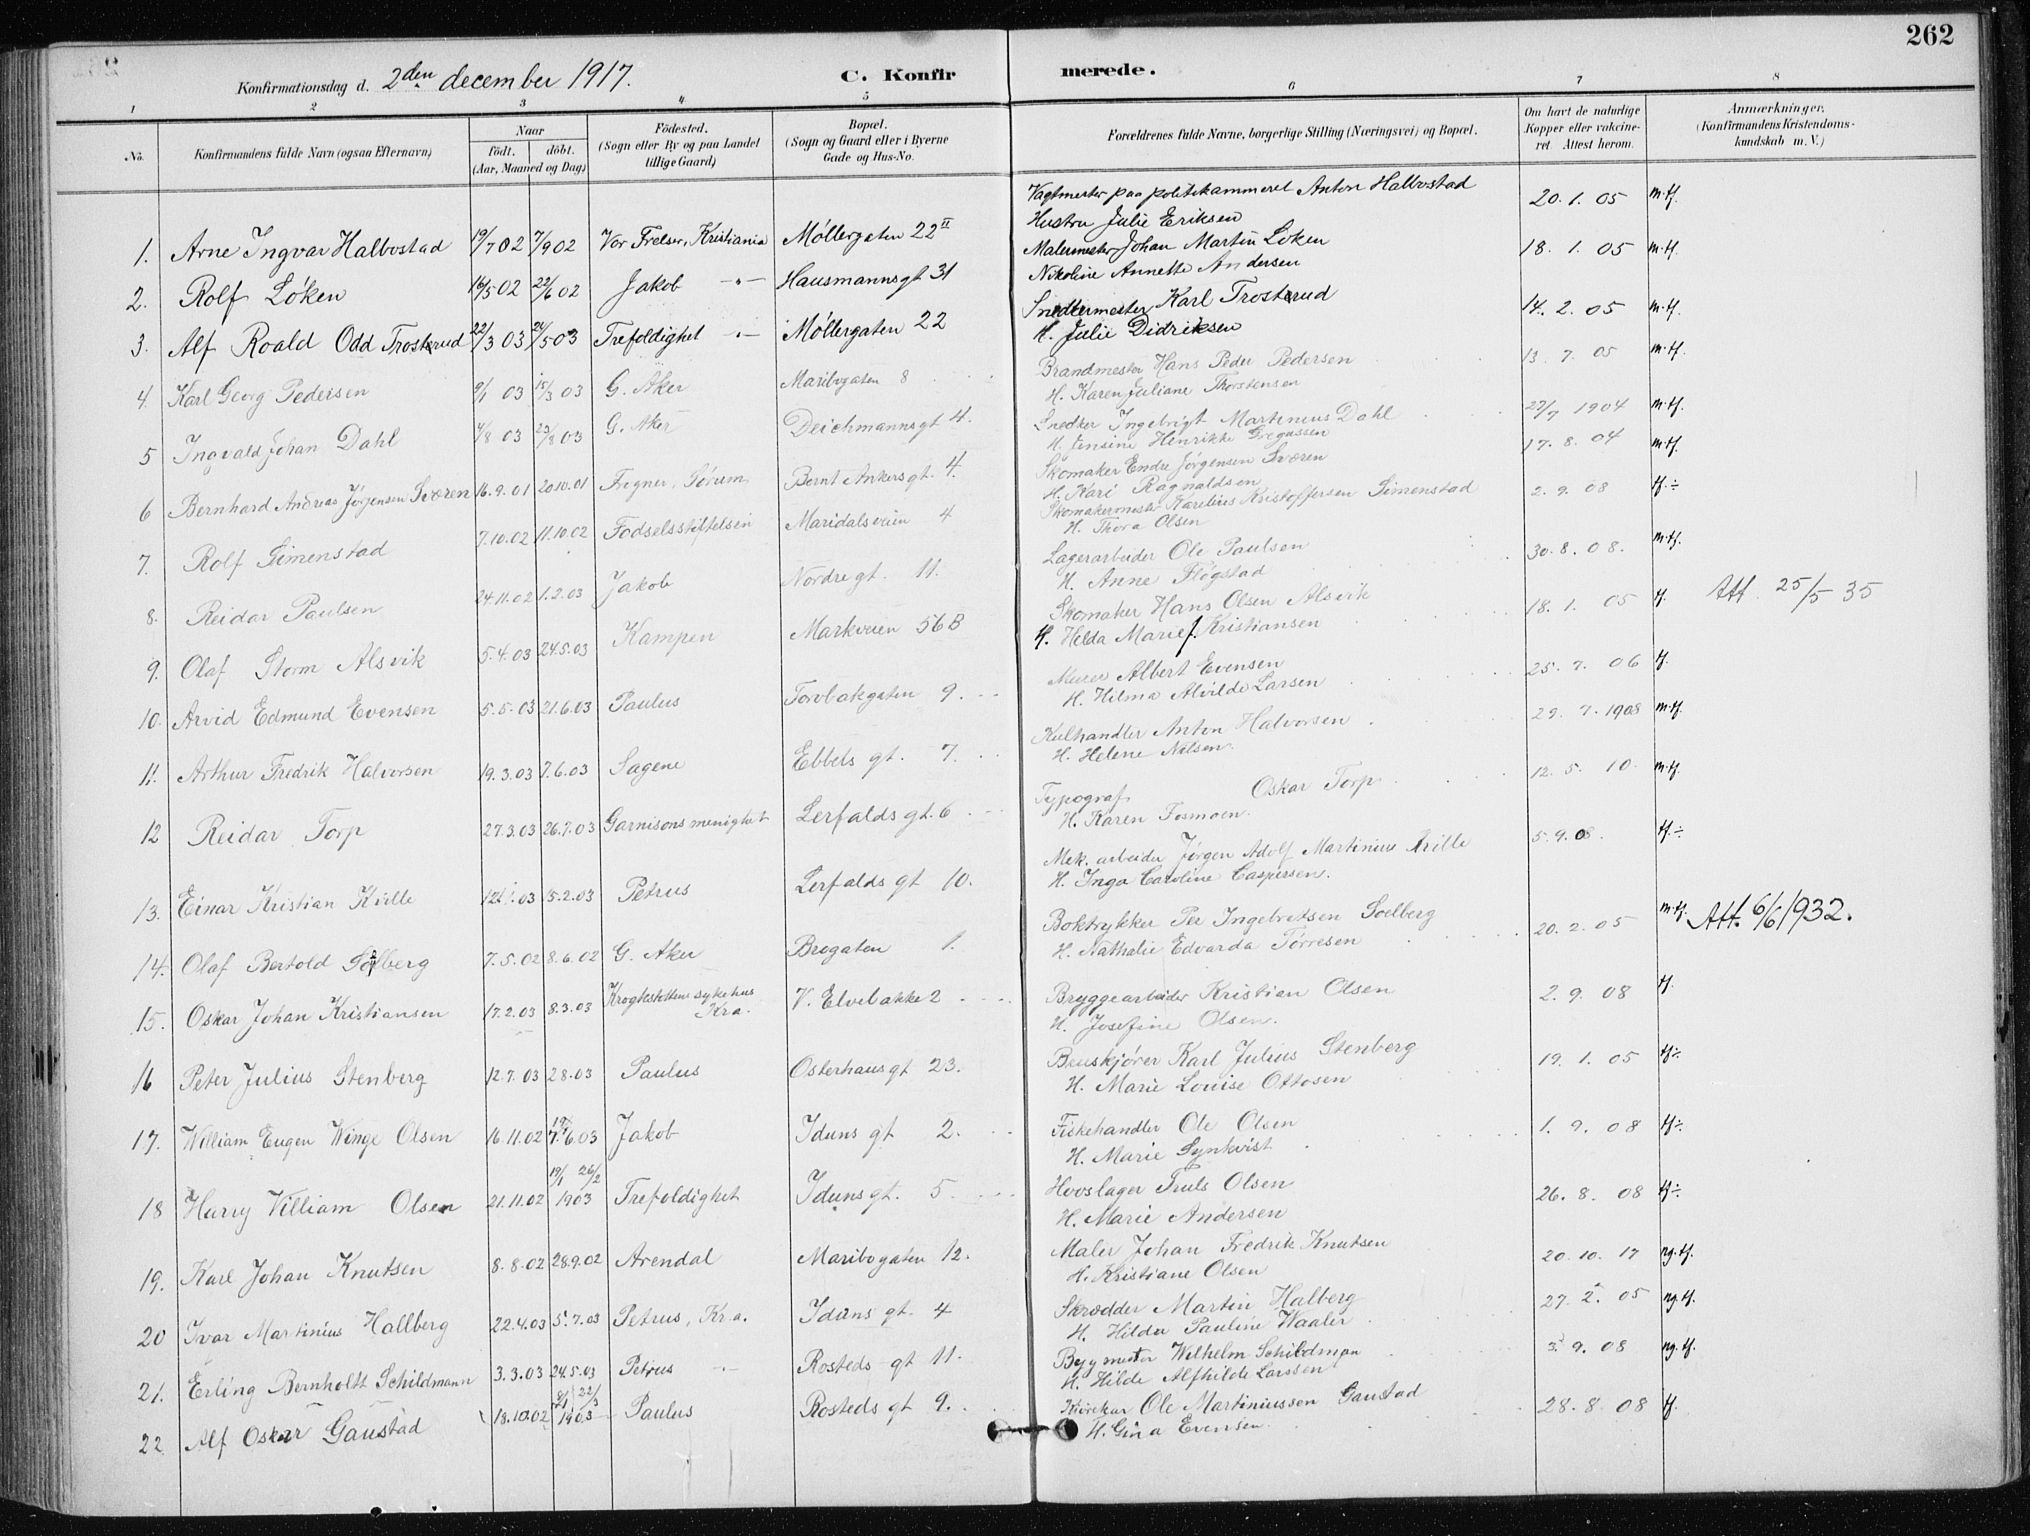 262
Konfirmationsdag d. 2den december 1917.
C. Konfirmerede.
1 2 3 4 5 6 7 8
No. Konfirmandens fulde Navn (ogsaa Efternavn) Naar födt. döbt. (Aar, Maaned og Dag) Födested. (Sogn eller By og paa Landet tillige Gaard) Bopæl. (Sogn og Gaard eller i Byerne Gade og Hus-No. Forældrenes fulde Navne, borgerlige Stilling (Næringsvei) og Bopæl. Om havt de naturlige Kopper eller vakcineret. Attest herom. Anmærkninger. (Konfirmandens Kristendomskundskab m. V.)
1. Arne Ingvar Halbostad 19/7 02 7/9 02 Vor Frelser, Kristiania Møllergaten 22 II Vagtmester paa politikammeret Anton Halbostad 20.1.05 m.tf.
Hustru Julie Eriksen
2. Rolf Løken 16/5 02 22/6 02 Jakob -"- Hausmannsgt 31 Malermester Johan Martin Løken 18.1.05 m.tf.
Nikoline Annette Andersen
3. Alf Roald Odd Trosterud 22/3 03 5 03 Trefoldighet -"- Møllergaten 22 Snedkermester Karl Trosterud 14.2.05 m.tf.
H. Julie Didriksen
4. Karl Georg Pedersen 9/1 03 15/3 03 G. Aker Maribogaten 8 Brandmester Hans Peder Pedersen 13.7.05 m.tf.
H. Karen Juliane Thorstensen
5 Ingvald Johan Dahl 4/8 03 23/8 03 G. Aker Deichmannsgt 4. Snedker Ingebrigt Martinius Dahl 27/7 1904 m.tf.
H. Jensine Henrikke Gregussen
6 Bernhard Andreas Jørgensen Sværen 16.9.01 20.10.01 Fogner, Sørum Bernt Ankers gt. 4. Skomaker Endre Jørgensen Sværen 17.8.04 m.tf.
H. Kari Ragnaldsen
7. Rolf Simenstad 7.10.02 11.10.02 Fødselsstiftelsen Maridalsveien 4 Skomakermester Karelius Kristoffersen Simenstad 2.9.08 tf.÷
H. Thora Olsen
8. Reidar Paulsen 24.11.02 1.2.03 Jakob Nordre gt. 11. Lagerarbeider Ole Paulsen 30.8.08. m.tf.
H. Anne Fløgstad
9. Olaf Storm Alsvik 5.4.03 24.5.03 Kampen Markveien 56 B Skomaker Hans Olsen Alsvik 18.1.05 tf. Att. 25/5 35
H. Helda Marie f. Kristiansen
10. Arvid Edmund Evensen 5.5.03 21.6.03 Paulus Torvbakgaten 9. Murer Albert Evensen 25.7.06 tf.
H. Hilma Alvilde Larsen
11. Arthur Fredrik Halvorsen 19.3.03 7.6.03 Sagene Ebbels gt. 7. Kulhandler Anton Halvorsen 29.7.1908 m.tf.
H. Helene Nilsen.
12 Reidar Torp 27.3.03 26.7.03 Garnisons menighet Lerfalds gt. 6 Typograf Oskar Torp 12.5.10. m.tf.
H. Karen Fosmoen.
13. Einar Kristian Kville 12.1.03 15.2.03 Petrus Lerfalds gt 10. Mek. arbeider Jørgen Adolf Martinius Kville 5.9.08. tf.÷
H. Inga Caroline Caspersen.
14. Olaf Bertold Solberg 7.5.02 8.6.02 G. Aker Brogaten 1. Boktrykker Per Ingebretsen Soelberg 20.2.05 m.tf. Att. 6/6 1932.
H. Nathalie Edvarda Tørresen
15. Oskar Johan Kristiansen 17.2.03 8.3.03 Kroghstøttens sykehus Kra. V. Elvebakke 2 Bryggearbeider Kristian Olsen 2.9.08 tf.
H. Josefine Olsen.
16 Peter Julius Stenberg 12.7.03 28.03 Paulus Osterhausgt 23. Benskjører Karl Julius Stenberg 19.1.05 tf÷
H. Marie Louise Ottosen
17. William Eugen Winge Olsen 16.11.02 6.03 Jakob Iduns gt 2. Fiskehandler Ole Olsen 1.9.08 tf÷.
H. Marie Synkvist
18 Harry Villiam Olsen 21.11.02 19/1 26/2 1903 Trefoldighet Iduns gt. 5. Hovslager Truls Olsen 26.8.08 tf÷.
H. Marie Andersen
19. Karl Johan Knutsen 8.8.02 28.9.02 Arendal Maribogaten 12. Maler Johan Fredrik Knutsen 20.10.17 ng.tf.
H. Kristiane Olsen
20 Ivar Martinius Hallberg 22.4.03 5.7.03 Petrus, Kr.a. Iduns gt. 4 Skrædder Martin Halberg 27.2.05 ng.tf.
H. Hilda Pauline Waaler
21. Erling Bernholtt Schildmann 3.3.03 24.5.03 Petrus -"- Rosteds gt 11. Bygmester Wilhelm Schildman 3.9.08 ng.tf.
H. Hilde Alfhilde Larssen
22 Alf Oskar Gaustad 13.10.02 8/1 22/3 1903 Paulus Rosteds gt 9. Ole Martiniussen Gaustad 28.8.08 tf.
H. Gina Evensen.